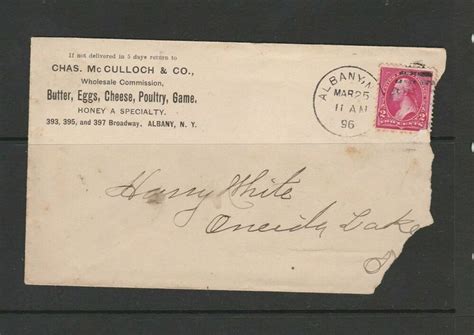 If not delivered in 5 days return to
CHAS. McCULLOCH & CO.,
Wholesale Commission,
Butter, Eggs, Cheese, Poultry, Game.
HONEY A SPECIALTY.
393, 395, and 397 Broadway, ALBANY, N. Y.
ALBANY, N
MAR 25
11 AM
96
2 2
TWO CENTS
Harry White
Oneida Lake